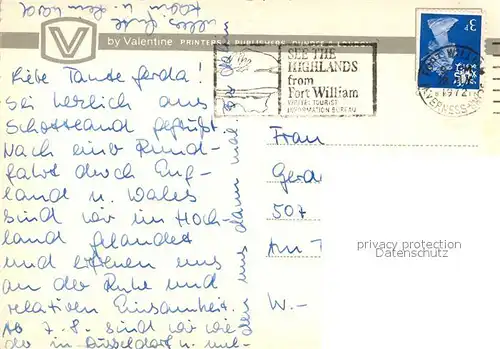 by Valentine PRINTERS & PUBLISHERS DUNDEE & LONDON
SEE THE
HIGHLANDS
from
Fort William
VISIT TOURIST
INFORMATION BUREAU
3P
FORT WILLIAM
1972
INVERNESS-SHIRE
Liebe Tante Gerda!
Sei herzlich aus
Schottland gegrüßt.
Nach einer Rund-
fahrt durch Eng-
land u. Wales
sind wir im Hoch-
land gelandet
und erfreuen uns
an der Ruhe und
relativen Einsamkeit.
Ab 7.8. sind wir wie-
der in Düsseldorf u.
dann mal
Frau
Gerd
507
An
W.-
privacy protection
Datenschutz